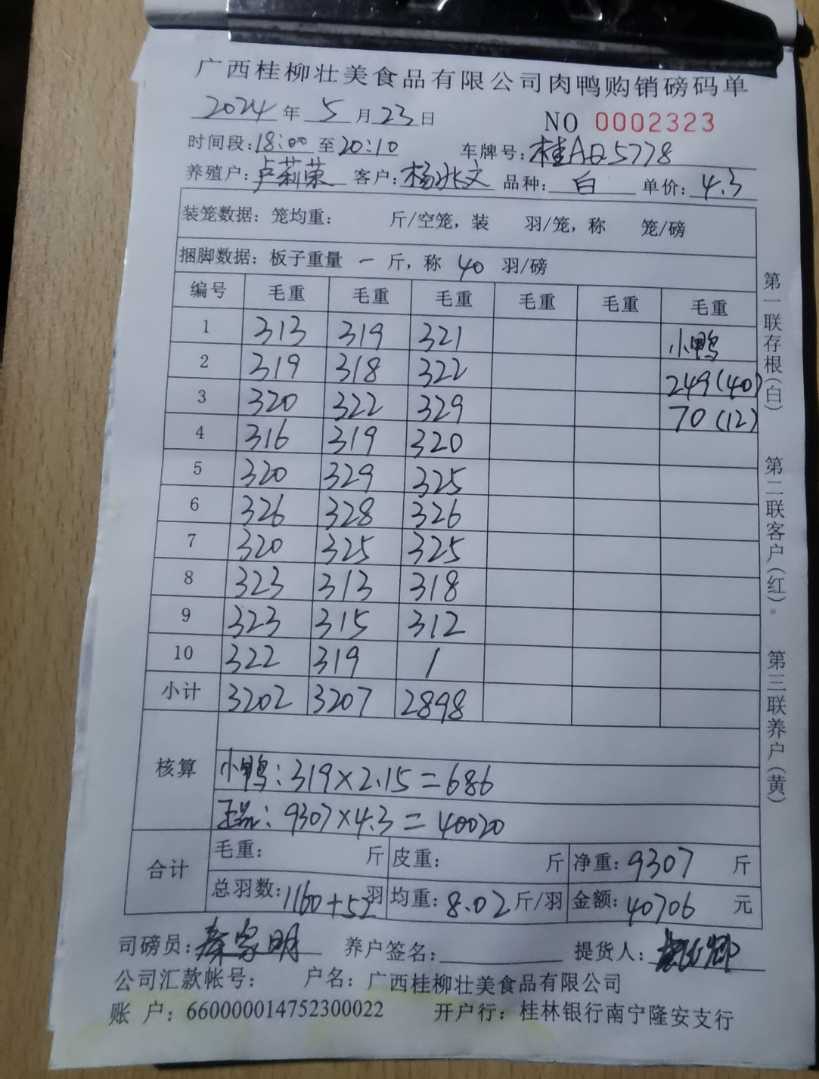 广西桂柳壮美食品有限公司肉鸭购销磅码单
2024年5月23日 NO 0002323
时间段:18:00至20:10 车牌号:桂AQ5778
养殖户:卢莉荣 客户:杨兆文 品种:白 单价:4.3
装笼数据:笼均重: 斤/空笼,装 羽/笼,称 笼/磅
捆脚数据:板子重量 一 斤,称 40 羽/磅
编号 毛重 毛重 毛重 毛重 毛重 毛重
1 313 319 321 小鸭
2 319 318 322 249(40)
3 320 322 329 70(12)
4 316 319 320
5 320 329 325
6 326 328 326
7 320 325 325
8 323 313 318
9 323 315 312
10 322 319 /
小计 3202 3207 2898
核算
小鸭:319×2.15=686
正品:9307×4.3=40020
合计
毛重: 斤 皮重: 斤 净重:9307 斤
总羽数:1160+52羽 均重:8.02斤/羽 金额:40706 元
司磅员:秦家明 养户签名: 提货人:
公司汇款帐号: 户名:广西桂柳壮美食品有限公司
账 户:660000014752300022 开户行:桂林银行南宁隆安支行
第一联存根(白)
第二联客户(红)
第三联养户(黄)